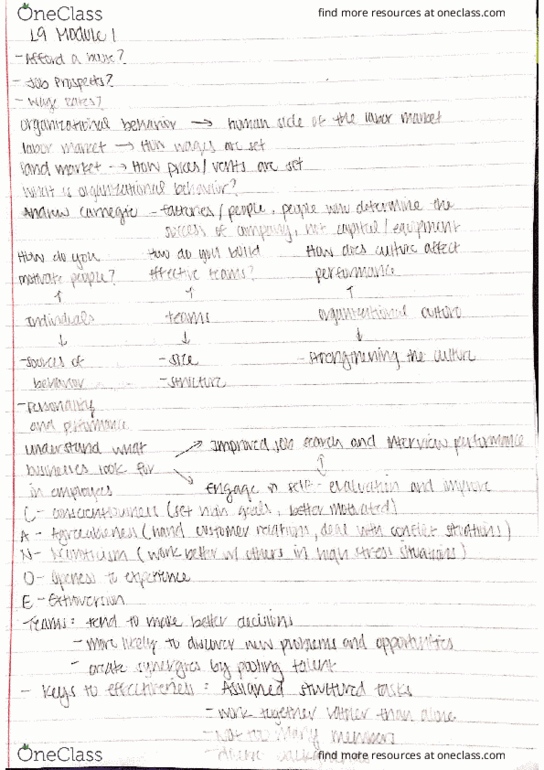 OneClass find more resources at oneclass.com
L9 Module 1
- Afford a house?
- Job Prospects?
- Wage rates?
organizational behavior → human side of the labor market
labor market → How wages are set
land market → How prices/rents are set
what is organizational behavior?
Andrew Carnegie - factories/people, people who determine the
success of company, not capital/equipment
How do you How do you build How does culture affect
motivate people? effective teams? performance
↑ ↑ ↑
Individuals teams organizational culture
↓ ↓ ↓
- sources of - size - strengthening the culture
behavior - structure
- Personality
and performance
understand what → Improved job search and interview performance
businesses look for ↑
in employees → Engage in self-evaluation and improve
C - conscientiousness (set main goals, better motivated)
A - Agreeableness (hand customer relations, deal with conflict situations)
N - Neuroticism (work better w/ others in high stress situations)
O - Openess to experience
E - Extroversion
Teams: tend to make better decisions
- more likely to discover new problems and opportunities
- create synergies by pooling talent
- Keys to effectiveness: Assigned structured tasks
- work together rather than alone
- Not too many members
- diverse
OneClass find more resources at oneclass.com